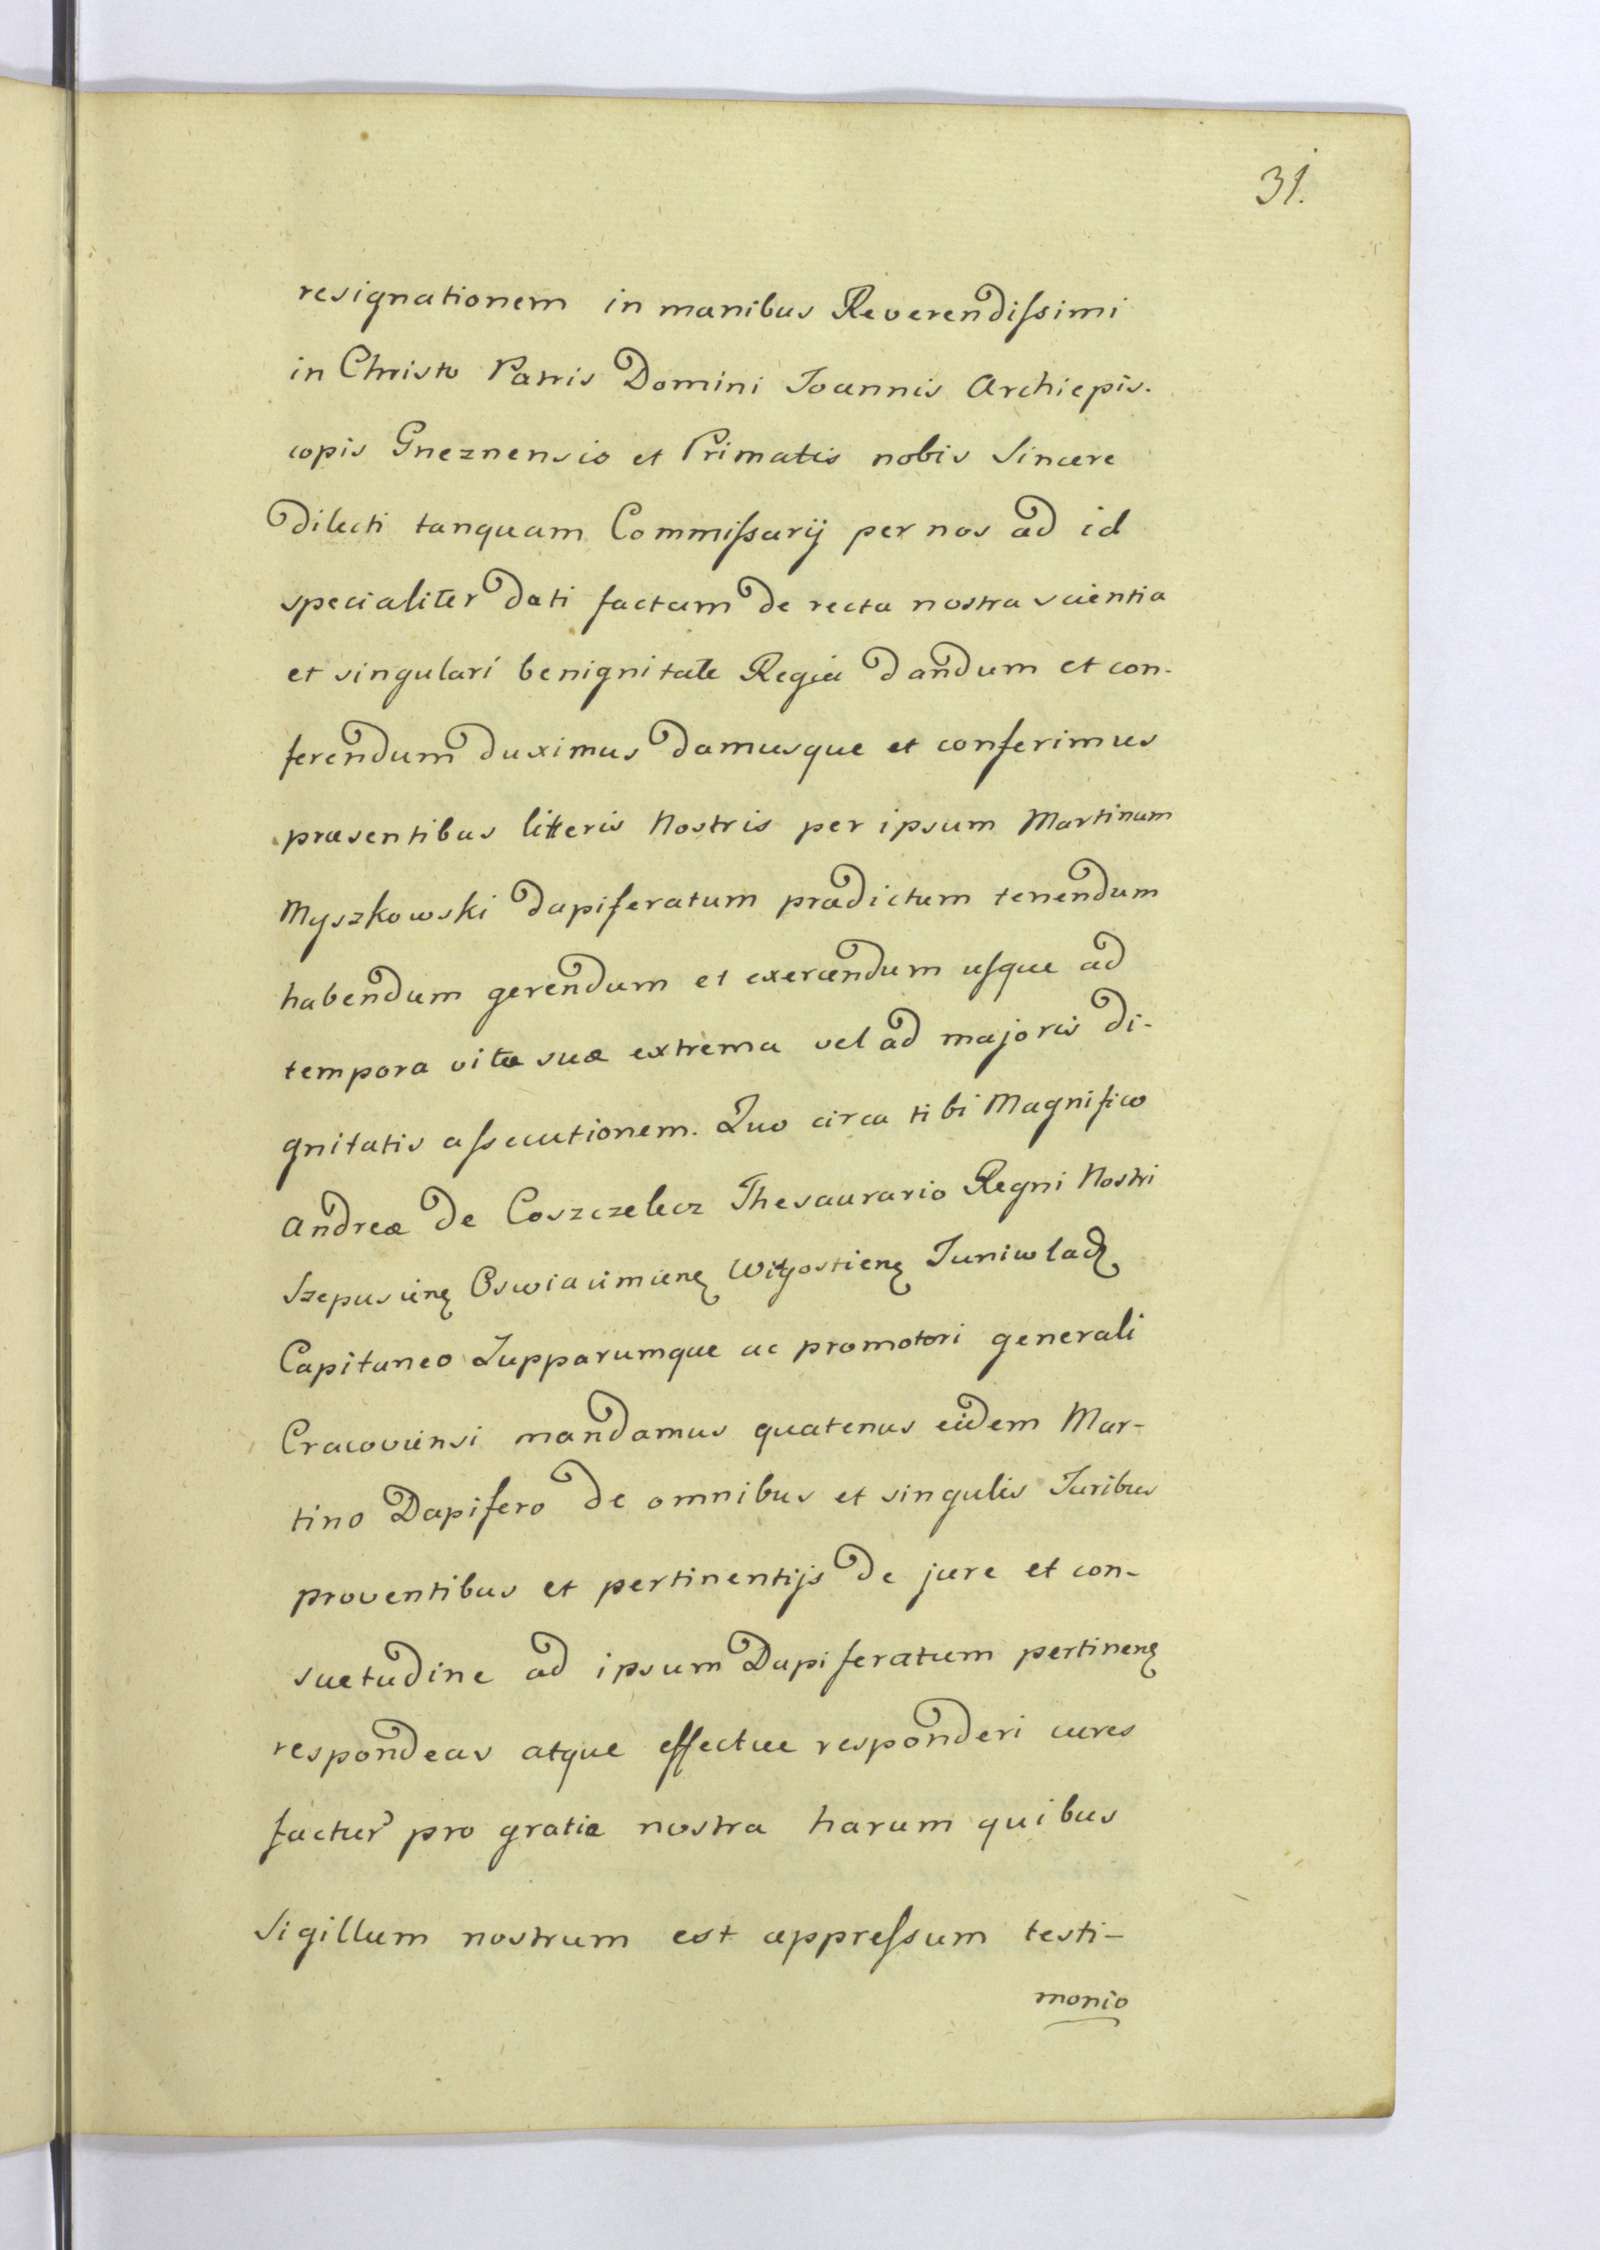 31.
resignationem in manibus Reverendiſsimi
in Christo Patris Domini Joannis Archiepis-
copis Gneznensis et Primatis nobis Sincere
dilecti tanquam Commiſsarij per nos ad id
specialiter dati factam de recta nostra scientia
et singulari benignitate Regia dandum et con-
ferendum duximus damusque et conferimus
præsentibus litteris Nostris per ipsum Martinum
Myszkowski dapiferatum prædictum tenendum
habendum gerendum et exercendum uſque ad
tempora vitæ suæ extrema vel ad majoris di-
gnitatis aſsecutionem. Quo circa tibi Magnifico
Andreæ de Coszczelecz Thesaurario Regni Nostri
Szepusienę Oswiacimienę Juniwladę
Capitaneo Zupparumque ac promotori generali
Cracoviensi mandamus quatenus eidem Mar-
tino Dapifero de omnibus et singulis Juribus
proventibus et pertinentijs de jure et con-
suetudine ad ipsum Dapiferatum pertinenę
respondeas atque effectue responderi cures
factur pro gratia nostra harum quibus
Sigillum nostrum est appreſsum testi-
monio